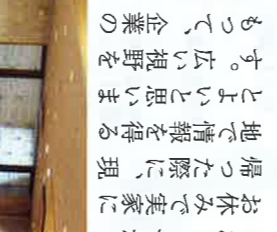 お休みで実家に
帰った際に、現
地で情報を得る
とよいと思いま
す。広い視野を
もって、企業の